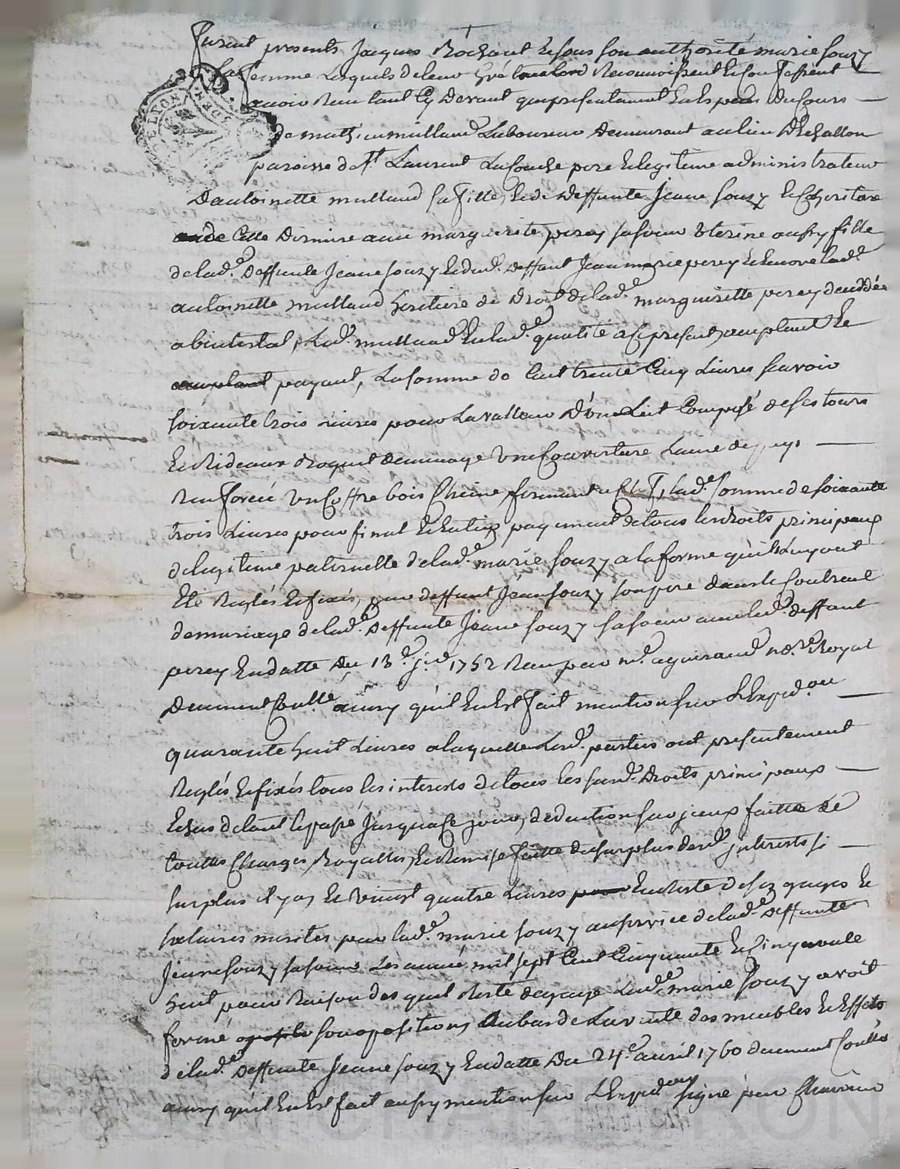 furent presents Jacques Rochant & sous son authorité marie souzy
sa femme Lesquels de leur gré Reconnoissent & confessent
avoir Receu tant Cy Devant que presentement En Espece du Cours
de mathieu mullaud Laboureur Demeurant au lieu D'Echallon
paroisse de st Laurent La Conche pere & legitime administrateur
D'antoinette mullaud sa fille, & de Deffunte Jeane souzy & heritiere
Cette Derniere avec marguerite perey sa soeur Uterine aussy fille
de lad.e Deffunte Jeane souzy & de Deffunt Jean marie perey & Encore lad.e
antoinette mullaud heritiere de Droit de lad.e margueritte perey decedée
abintestat, Led. mullaud En lad.e qualité a cy present acceptant &
payant, La somme de Cent trente Cinq Livres scavoir
soixante trois Livres pour La valleur D'un Lit Composé de ses tours
& Rideaux Une Couverture Laine
Renforcée un Coffre bois Cheine fermant a Clef, lad.e somme de soixante
trois Livres pour final & Entier payement de tous les droits principaux
de legitime paternelle de lad.e marie souzy, a la forme qu'ils luy ont
Eté Reglés & fixés, par deffunt Jean souzy son pere dans le Contract
de mariage de lad.e Deffunte Jeane souzy sa soeur avec led. deffunt
perey En datte Du 13.e 1752 Receu par m.e aguiraud no.re Royal
Deuement Con.llé ainsy qu'il En Est fait mention sur L'Exped.on
quarante huit Livres a laquelle Led. parties ont presentement
Reglés & fixés tous les interests de tous les susd. Droits principaux
Echus de tout le passé Jusqu'a Ce jour, deduction sur iceux faitte de
touttes Charges Royalles, & Remise faitte du surplus desd. interests si
surplus il y a, & vingt quatre Livres En Reste de ses gages &
salaires merités par lad.e marie souzy au service de lad.e Deffunte
Jeane souzy sa soeur Les année mil sept Cent Cinquante & Cinquante
huit pour Raison desquels Reste de gages Lad.e marie souzy avoit
formé son opposition Au bas de La vente des meubles & Effets
de lad.e Deffunte Jeane souzy En datte Du 24.e avril 1760 deuement Con.llé
ainsy qu'il En Est fait aussy mention sur L'Exped.on signé par